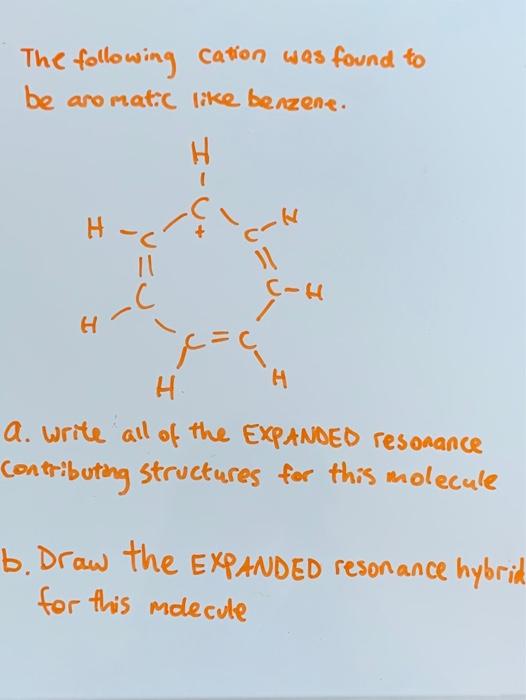 The following cation was found to
be aromatic like benzene.
H
H - C C + C - H
|| \\
C C - H
H C = C
H H
a. Write all of the EXPANDED resonance
contributing structures for this molecule
b. Draw the EXPANDED resonance hybrid
for this molecule